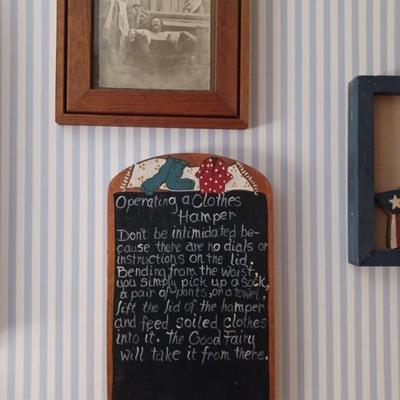 Operating a Clothes
Hamper
Don't be intimidated be-
cause there are no dials or
instructions on the lid.
Bending from the waist,
you simply pick up a sock,
a pair of pants, or a towel,
lift the lid of the hamper
and feed soiled clothes
into it. The Good Fairy
will take it from there.